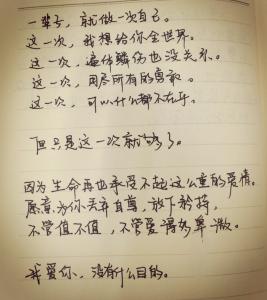 一辈子，就做一次自己。
这一次，我想给你全世界。
这一次，遍体鳞伤也没关系。
这一次，用尽所有的勇敢。
这一次，可以什么都不在乎。
但只是这一次就够了。
因为生命再也承受不起这么重的爱情。
愿意为你丢弃自尊，放下矜持，
不管值不值，不管爱得多卑微。
我爱你，没有什么目的。